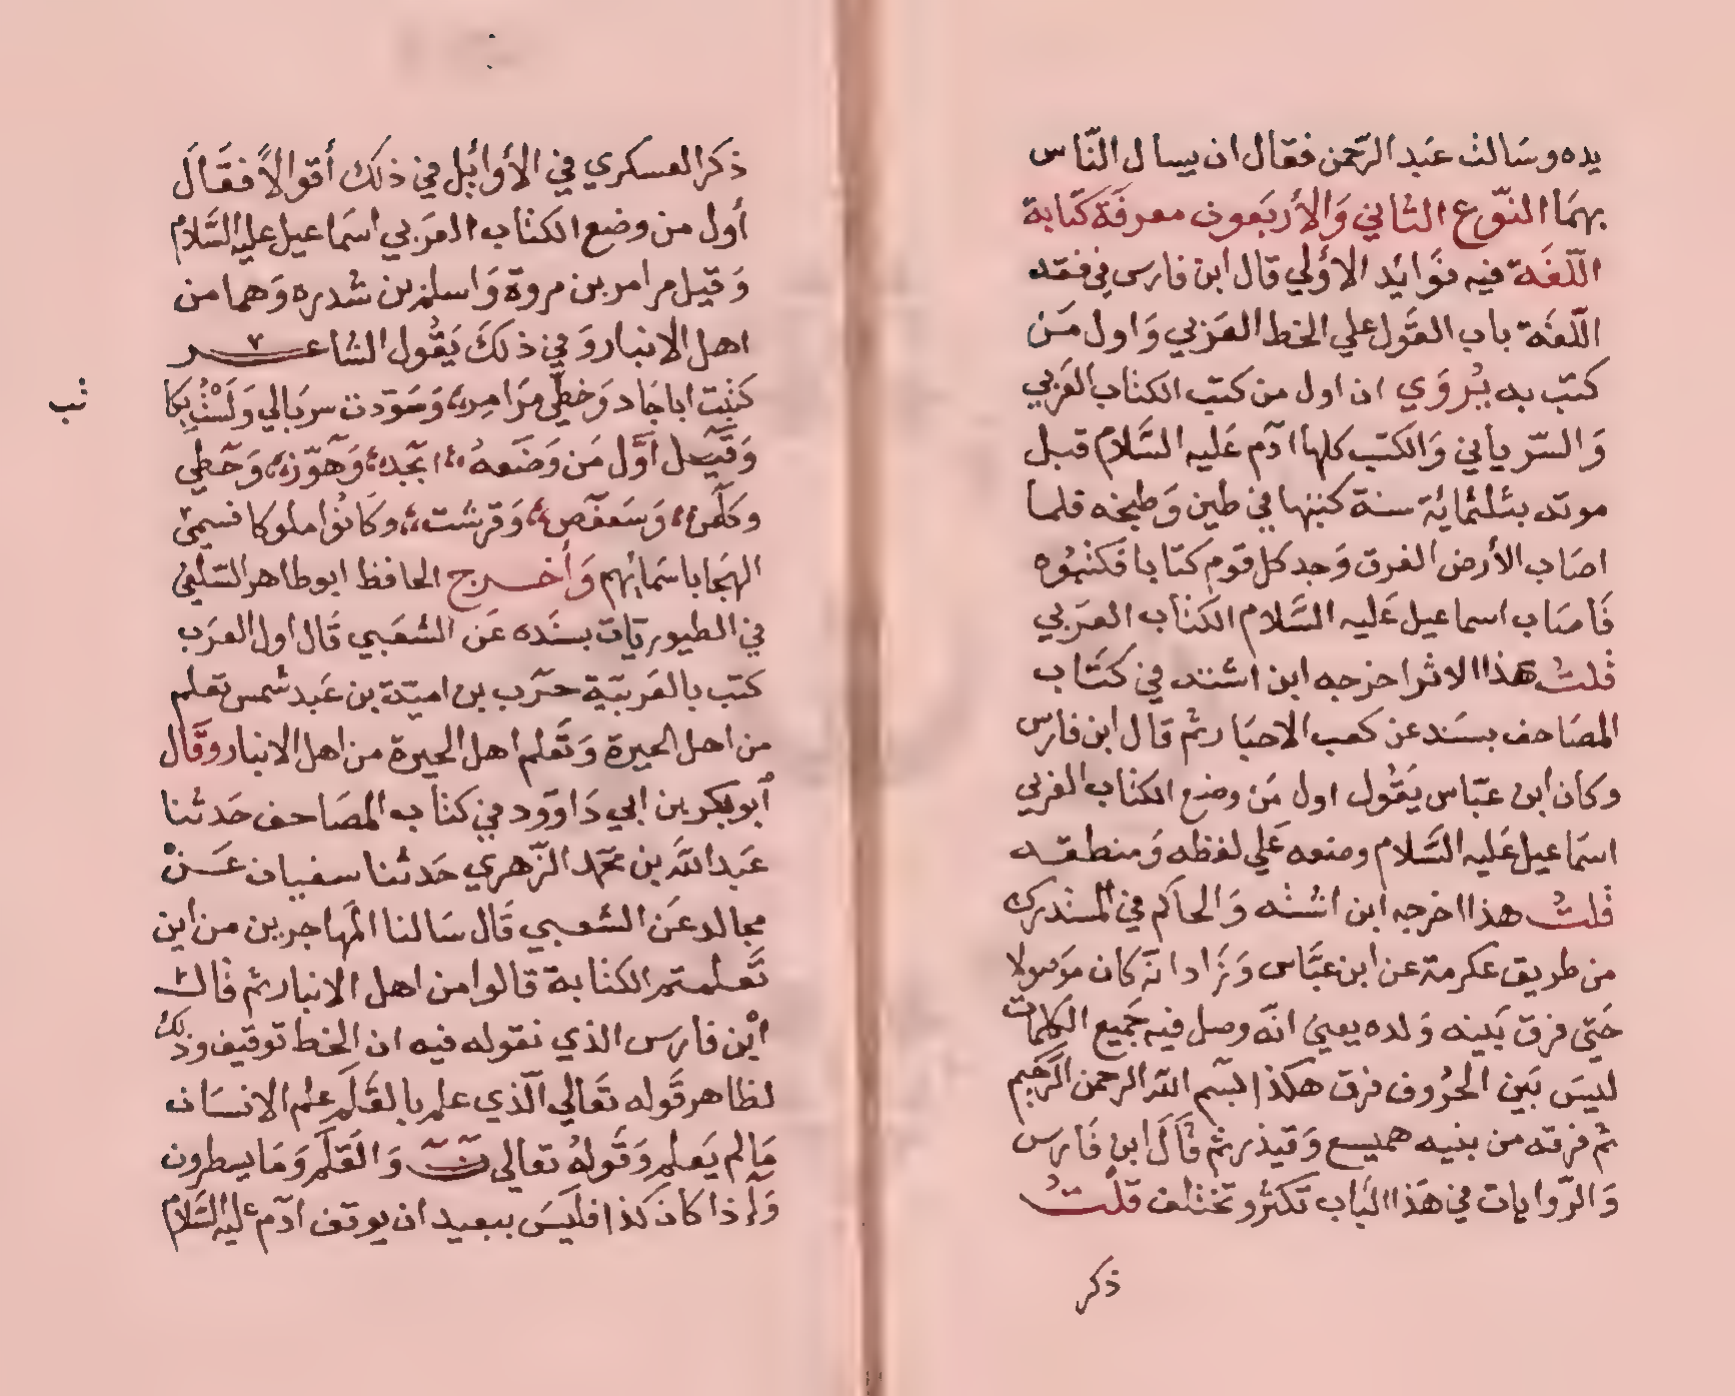 يده وسَالت عبَد الرّحمن فقال ان يسال النّاس
بهمَا النّوع الثاني وَالأربَعون معرفَة كتَابة
اللّغَة فيه فوَايد الاوُلي قال ابن فارس في فقه
اللّغَة باب القَول علي الخط العَربي وَاول مَن
كتَب به يُروَي ان اول من كتب الكتاب العَربي
وَالسّرياني وَالكتب كلها ادَم عَليه السَّلام قبل
موته بثلثمايَة سنة كتبها في طين وَطبخه فلما
اصَاب الأرض الغرق وَجد كل قوم كتابا فكتبُوه
فَاصَاب اسماعيل عَليه السَّلام الكتاب العَربي
قلتُ هذا الاثر اخرجه ابن اشته في كتَاب
المصَاحف بسَند عن كعب الاحبَار ثم قال ابن فارس
وكان ابن عبّاس يَقُول اول مَن وضع الكتاب العربي
اسمَاعيل عَليه السَّلام وضعه عَلي لفظه وَمنطقه
قلتُ هذا اخرجه ابن اشته وَالحاكم في المستدرك
من طريق عكرمة عن ابن عبَّاس وَزَاد انّه كان موَصولا
حَتّي فرق بَينه وَلده يعني انّه وصل فيه جَميع الكلمات
ليسَ بَين الحرُوف فرق هكذا بسم الله الرحمن الرَّحيم
ثم فرقه من بنيه هميسع وَقيذر ثم قَالَ ابن فَارس
وَالرّوايات في هَذا البَاب تَكثر وتختلف قلتُ
ذكر
ذكَر العسكري في الأوائل في ذلك أقوالاً فقَالَ
أول من وضع الكتاب العَربي اسمَاعيل عليه السَّلام
وَقيل مرامر بن مروة وَاسلم بن شدره وَهما من
اهل الانبار وَفي ذلكَ يَقُول الشاعر
كتبت اباجَاد وَخطّي مرَامر وَسَوّدت سربَالي وَلَسْتُ بكا
تب
وَقيل اَوَّل مَن وَضَعهُ ابجد وَهوّز وَحطي
وكلمن وَسَعفص وَقرشت وَكانوُا ملوكا فسمي
الهجَا باسمَائهم وَأخرج الحافظ ابو طاهر السّلفي
في الطيوريّات بسَنَده عَن الشعَبي قَال اول العرَب
كتب بالعَربيّة حَرب بن اميّة بن عَبد شمس تعلم
من اهل الحيرة وَتَعلم اهل الحيرة من اهل الانبار وقَال
أبو بكر بن ابي دَاوود في كتاب المصَاحف حَدثنا
عَبد اللّه بن محمّد الزّهري حَدثنا سفيان عَن
مجالد عَن الشعبي قَال سَالنا المهَاجرين من اين
تَعلمتم الكتابة قالوا من اهل الانبار ثم قال
ابْن فارَس الذي نقوله فيه ان الخط توقيف وذلك
لظاهر قَوله تعَالي الّذي علم بالقَلَم علم الانسَان
مَالم يَعلم وَقَولهُ تعالي ن وَالقَلَم وَمَا يسطرون
وَإذا كان كذا فليَسَ ببعيد ان يوقف ادَم عليه السَّلام